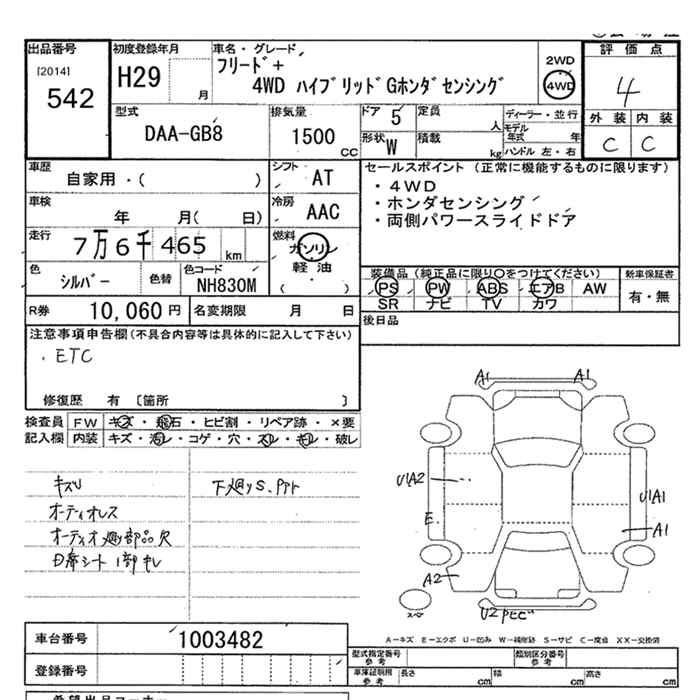 出品番号
[2014]
542
初度登録年月
H29
月
車名・グレード
フリード+
4WD ハイブリッドGホンダセンシング
2WD
4WD
評価点
4
外装 内装
C C
型式
DAA-GB8
排気量
1500
CC
ドア
5
定員
人
形状
W
積載
kg
ディーラー・並行
モデル年式 年
ハンドル 左・右
車歴
自家用・( )
シフト
AT
車検
年 月( 日)
冷房
AAC
走行
7万6千465
km
燃料
ガソリン
軽油
( )
色
シルバー
色替
色コード
NH830M
R券
10,060円
名変期限
月 日
セールスポイント (正常に機能するものに限ります)
・4WD
・ホンダセンシング
・両側パワースライドドア
装備品(純正品に限り〇をつけてください)
PS PW ABS エアB AW
SR ナビ TV カワ
新車保証書
有・無
後日品
注意事項申告欄(不具合内容等は具体的に記入して下さい)
.ETC
修復歴 有 〔箇所 〕
検査員
記入欄
FW キズ・飛石・ヒビ割・リペア跡・×要
内装 キズ・汚レ・コゲ・穴・スレ・キレ・破レ
キズU
オーディオレス
オーディオ廻り部品欠
D席シート1部キレ
下廻りS.
A1 A1
U1A2
E
U1A1
A1
A2
U2
A-キズ E-エクボ U-凹み W-補修跡 S-サビ C-腐食 XX-交換済
車台番号
1003482
登録番号
型式指定番号
参考
類別区分番号
参考
車庫証明用
参考
長さ cm 幅 cm 高さ cm
希望出品コーナー